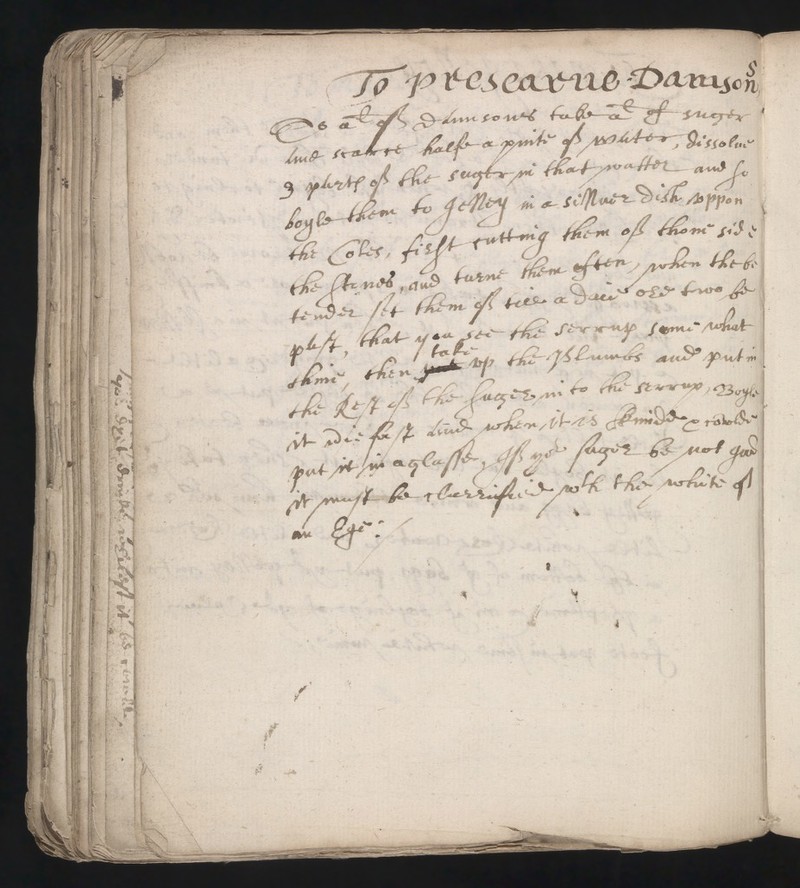 To presearue Damsons
To a l of damsones take a l of suger
and scarce halfe a pinte of water, dissolue
3 parts of the suger in that watter and so
boyle them to gelley in a silluer dish vppon
the Coles, first cutting them of thone side
the stones, and turne them often, when the be
tender set them of till a daie ore two be
past, that you see the serrup some what
thine, then take vp the Plumbs and put in
the Rest of the suger in to the serrup, Boyle
it verie fast and when it is skimde & cowlde
put it in a glasse, If yor suger be not good
it must be clarrified wth the white of
an Ege:
it be